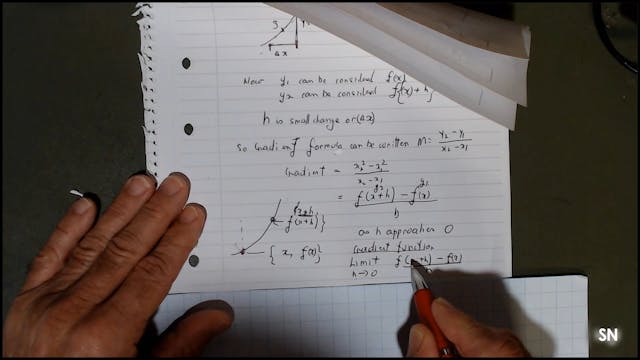 3
Δx
Now y₁ can be considered f(x)
y₂ can be considered f{(x)+h}
h is small change or (Δx)
So Gradient formula can be written M = (y₂ - y₁)/(x₂ - x₁)
Gradient = (x₂² - x₁²)/(x₂ - x₁)
y₂ y₁
= (f(x+h) - f(x))/h
x+h
f(x+h)}
as h approaches 0
{x, f(x)}
Gradient function
Limit f(x+h) - f(x)
h→0
SN